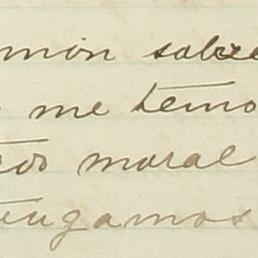 món sobre
me temo
moral
tengamos